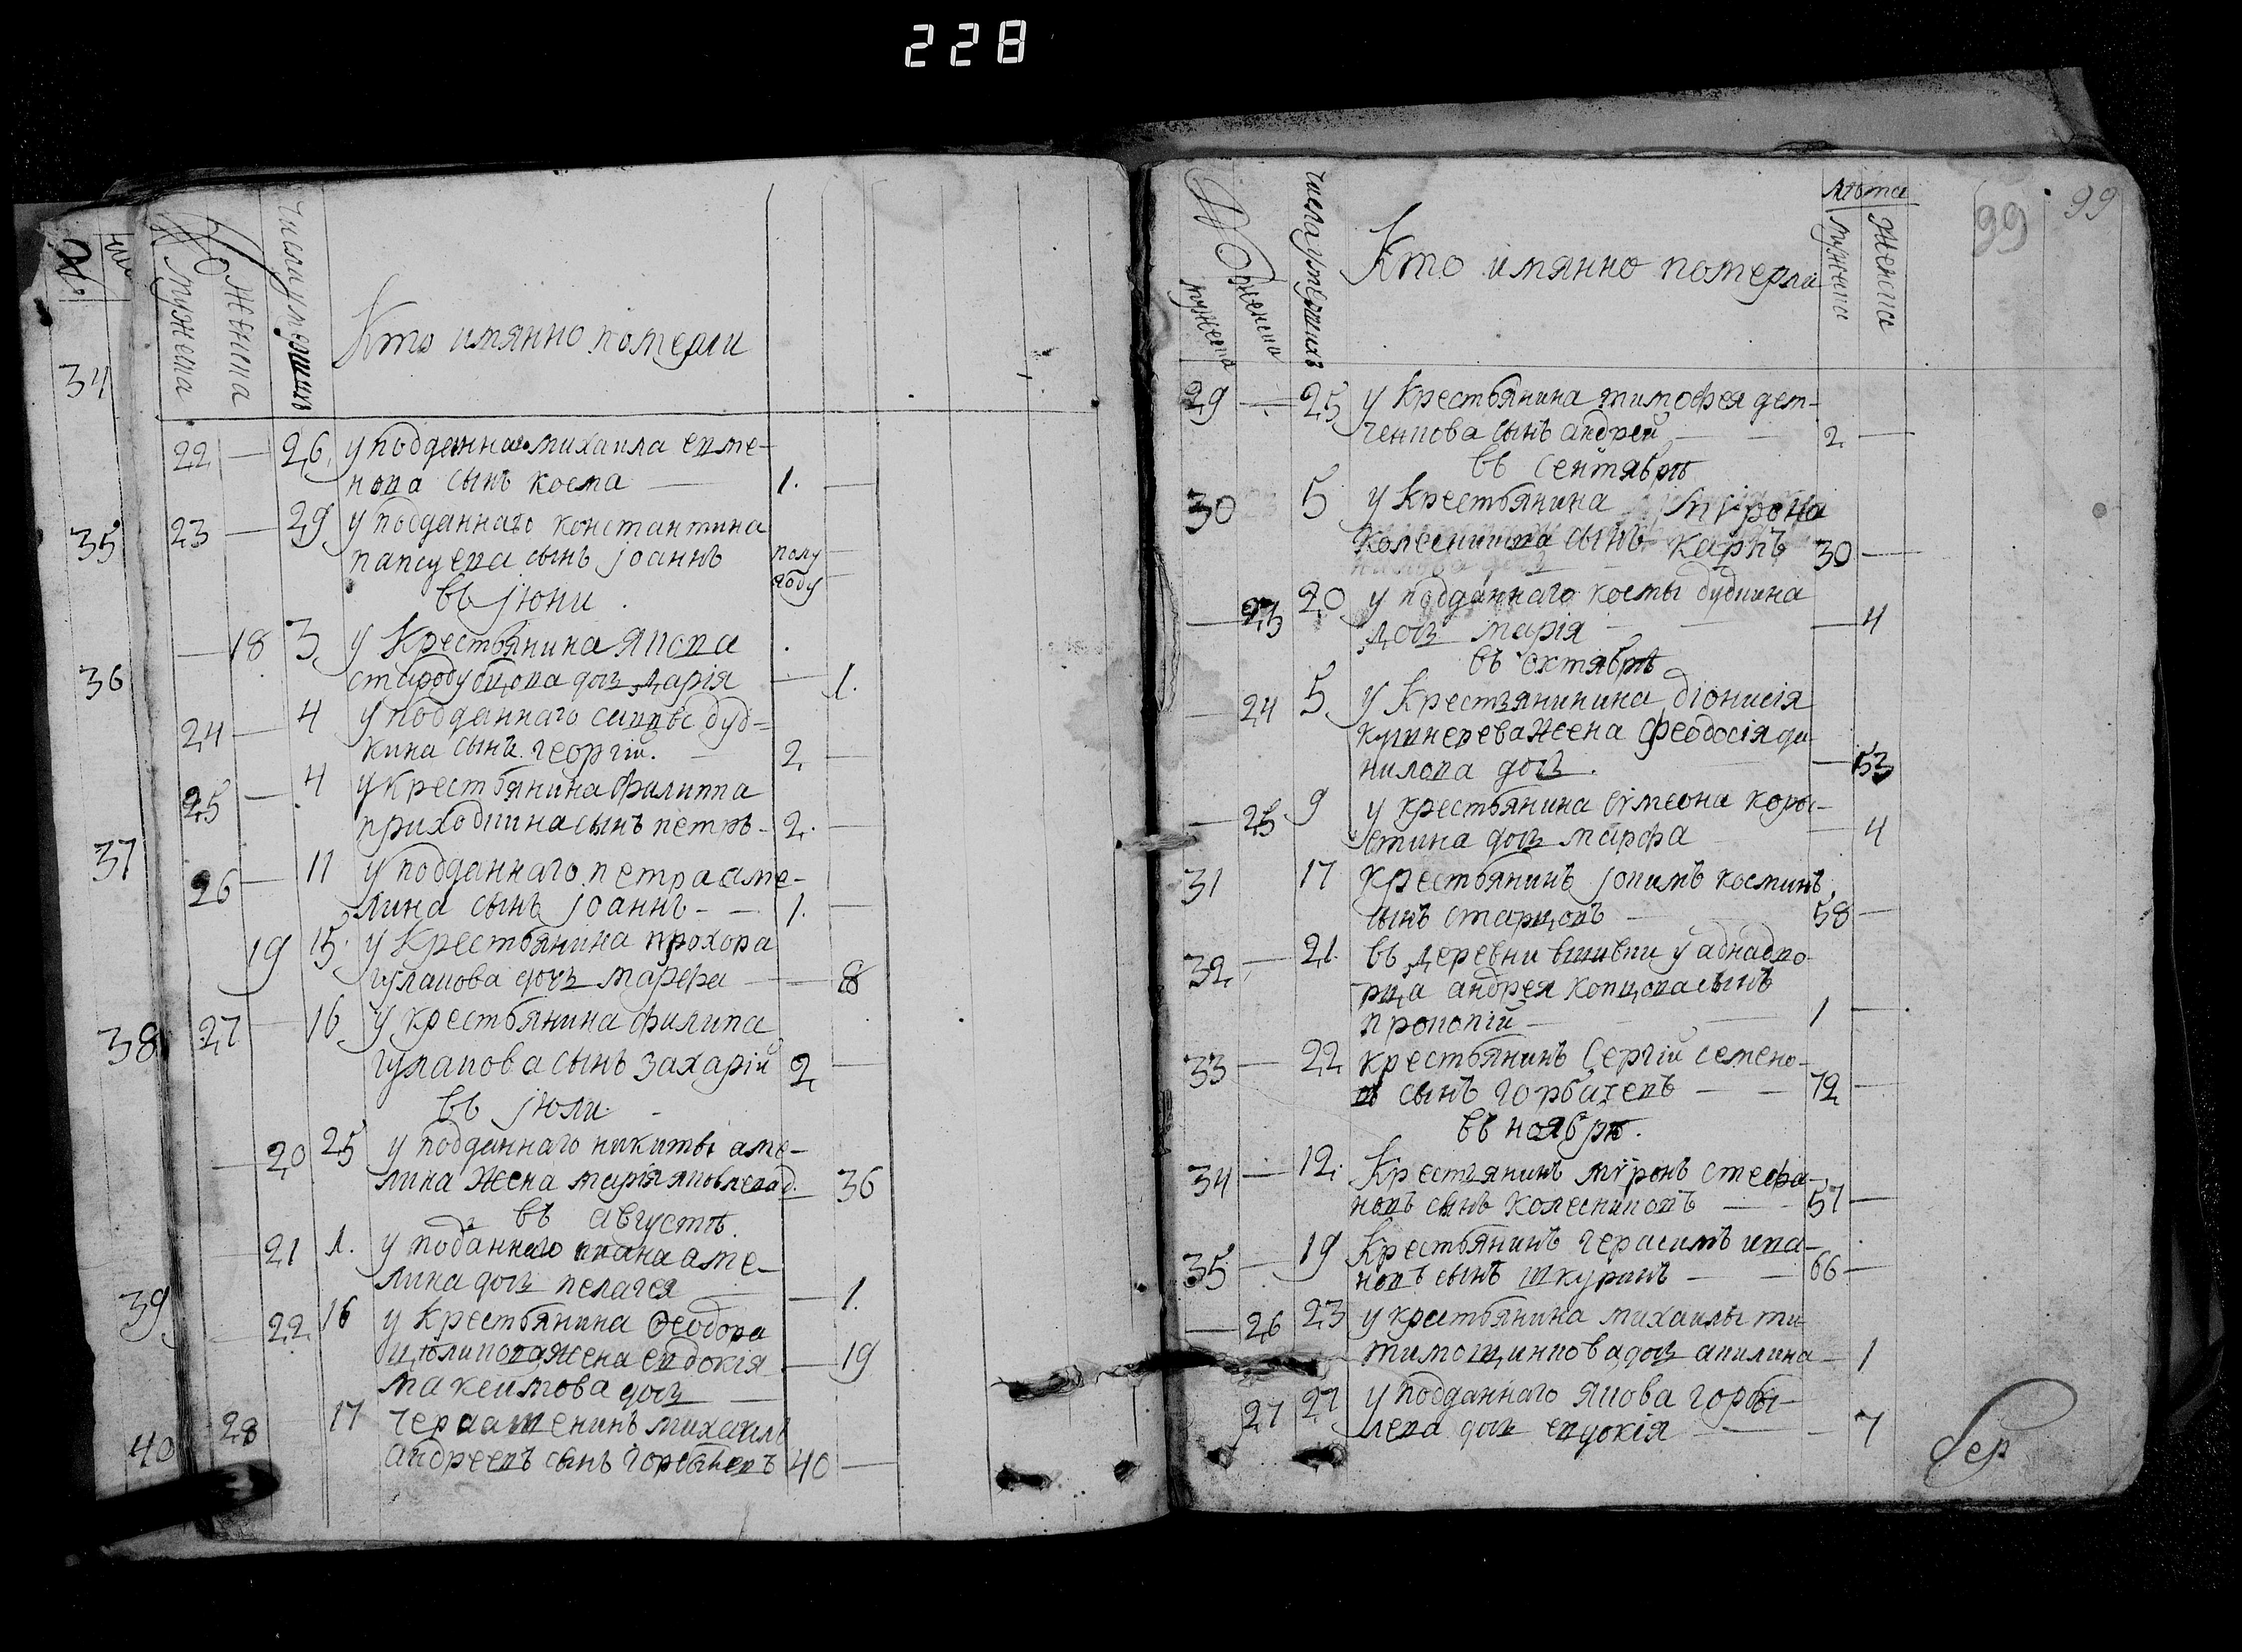 228
Кто имянно померли
мужеска
женска
числа умерших
34
22 — 26 у подданнаг михаила евме-
нова сынъ косма — 1. —
35 23 — 29 у подданнаго константина
папсуева сынъ іоаннъ полу году —
въ іюни
36 — 18 3 у крестьянина якова
стародубцова дочь дарія — 1.
24 — 4 у подданнаго саввы дуд-
кина сынъ георгій. — 2 —
25 — 4 у крестьянина филиппа
приходкина сынъ петръ — 2. —
37 26 — 11 у подданнаго петра аме-
лина сынъ іоаннъ — — 1. —
19 15 у крестьянина прохора
гулакова дочь марфа — — 8
38 27 — 16 у крестьянина филипа
гулакова сынъ захарій 2 —
въ іюли
— 20 25 у подданнаго никиты аме-
лина жена марія яковлева д. — 36
въ августѣ.
— 21 1. у поданнаго ивана аме-
лина дочь пелагея — 1.
39 — 22 16 у крестьянина феодора
цѣликова жена евдокія — 19
максимова дочь —
40 28 17 черкашенинъ михаилъ
андреевъ сынъ горбачевъ 40 —
99 99
мужеска
женска
числа умершихъ
Кто имянно померли
лѣта
мужска
женска
29 — 25 у крестьянина тимофея дет-
ченкова сынъ андрей — — 2 —
въ сентябрѣ
30 5 у крестьянина мѵрона
колесникова сынъ карпъ 30 —
— 23 20 у подданнаго космы дудкина
дочь марія — — 4
въ октябрѣ
— 24 5 у крестьянинина діонисія
кушнерева жена феодосія да-
нилова дочь. — 53
— 25 9 у крестьянина сѵмеона коры-
стина дочь марфа — 4
31 17 крестьянинъ іакимъ косминъ
сынъ старцовъ — 58 —
32 — 21. въ деревни вшивки у аднадво-
рца андрея копцова сынъ
прокопій — — 1 —
33 — 22 крестьянинъ сергій семено-
въ сынъ горбачевъ — — 72 —
въ ноябрѣ.
34 — 12. Крестьянинъ мѵронъ стефа-
новъ сынъ колесниковъ — 57 —
35 — 19 Крестьянинъ герасимъ ива-
новъ сынъ шкуринъ — — 66 —
— 26 23 у крестьянина михаилы ти-
тимошинкова дочь акилина — 1
27 27 у подданнаго якова горбы-
лева дочь евдокія — — 7
бер